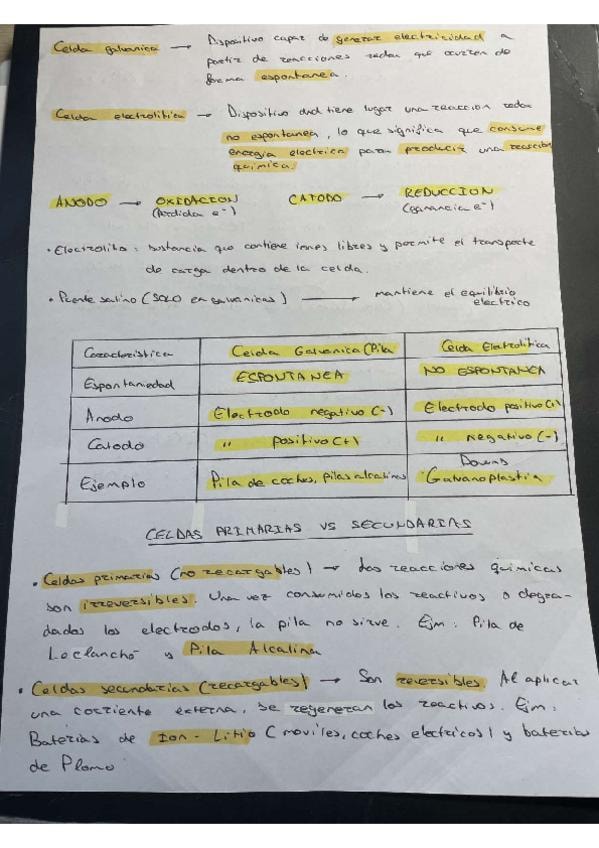 Celda galvanica → Dispositivo capaz de generar electricidad a
partir de reacciones redox que ocurren de
forma espontanea.
Celda electrolitica → Dispositivo dnd tiene lugar una reaccion redox
no espontanea, lo que significa que consume
energia electrica para producir una reaccion
quimica.
ANODO → OXIDACION CATODO → REDUCCION
(Perdida e-) (Ganancia e-)
• Electrolito: Sustancia que contiene iones libres y permite el transporte
de carga dentro de la celda.
• Puente salino (SOLO en galvanicas) → mantiene el equilibrio
electrico
Caracteristica Celda Galvanica (Pila Celda Electrolitica
Espontaniedad ESPONTANEA NO ESPONTANEA
Anodo Electrodo negativo (-) Electrodo positivo (+)
Catodo " positivo (+) " negativo (-)
Ejemplo Pila de coches, pilas alcalinas Downs
Galvanoplastia
CELDAS PRIMARIAS VS SECUNDARIAS
• Celdas primarias (no recargables) → Las reacciones químicas
son irreversibles. Una vez consumidos los reactivos o degra-
dados los electrodos, la pila no sirve. Ejm: Pila de
Leclanché y Pila Alcalina
• Celdas secundarias (recargables) → Son reversibles. Al aplicar
una corriente externa, se regeneran los reactivos. Ejm:
Baterias de Ion - Litio (moviles, coches electricos) y baterias
de Plomo.